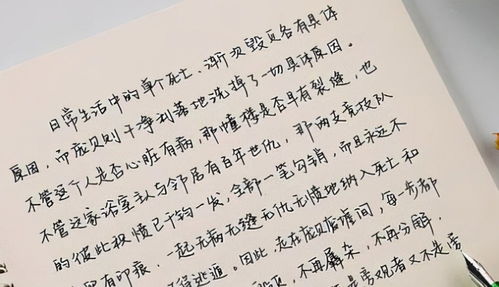 日常生活中的单个死亡、渐次毁灭各有具体
原因，而虚贝则干净利落地洗掉了一切具体原因。
不管这个人是否心脏有病，那幢楼是否早有裂缝，也
不管这家浴室主人与邻居有百年世仇，那两支竞技队
的彼此积愤已千钧一发，全部一笔勾销，而且永远不
留有印痕，一起无病无缝无仇无愤地纳入死亡和
逃遁。因此，走在虚贝废墟间，每一步都
，不再羼杂，不再分解，
是旁观者又不是旁